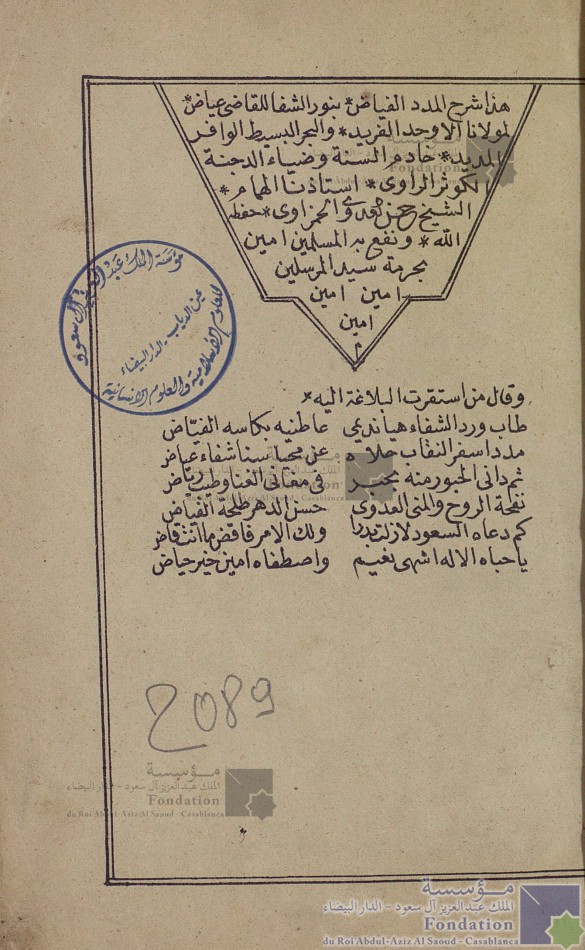 هذا شرح المدد الفياض * بنور الشفا للقاضي عياض *
لمولانا الاوحد الفريد * والبحر البسيط الوافر
المديد * خادم السنة وضياء الدجنة
الكوثر الراوى * استاذنا الهمام *
الشيخ حسن العدوي الحمزاوى * حفظه
الله * ونفع به المسلمين امين
بحرمة سيد المرسلين
امين امين
امين
م
مؤسسة الملك عبد العزيز آل سعود
للعلوم الاسلامية والعلوم الانسانية
عين الدياب - الدار البيضاء
وقال من استقرت البلاغة اليه *
طاب ورد الشفاء هيا نديمي عاطنيه بكاسه الفياض
مدد اسفر النقاب جلاه عن محيا بسنا شفاء عياض
ثم دانى الحبور منه بجبر فى مغانى الغنا وطيب رياض
نفحة الروح والمنى العدوى حسن الدهر طلحة الفياض
كم دعاه السعود لازلت بدرا ولك الامر فاقض ما انت قاض
ياحباه الاله اشهى نعيم واصطفاه امين خير حياض
2089
مؤسسة
الملك عبد العزيز آل سعود - الدار البيضاء
Fondation
du Roi Abdul-Aziz Al Saoud - Casablanca
مؤسسة
الملك عبد العزيز آل سعود - الدار البيضاء
Fondation
du Roi Abdul-Aziz Al Saoud - Casablanca